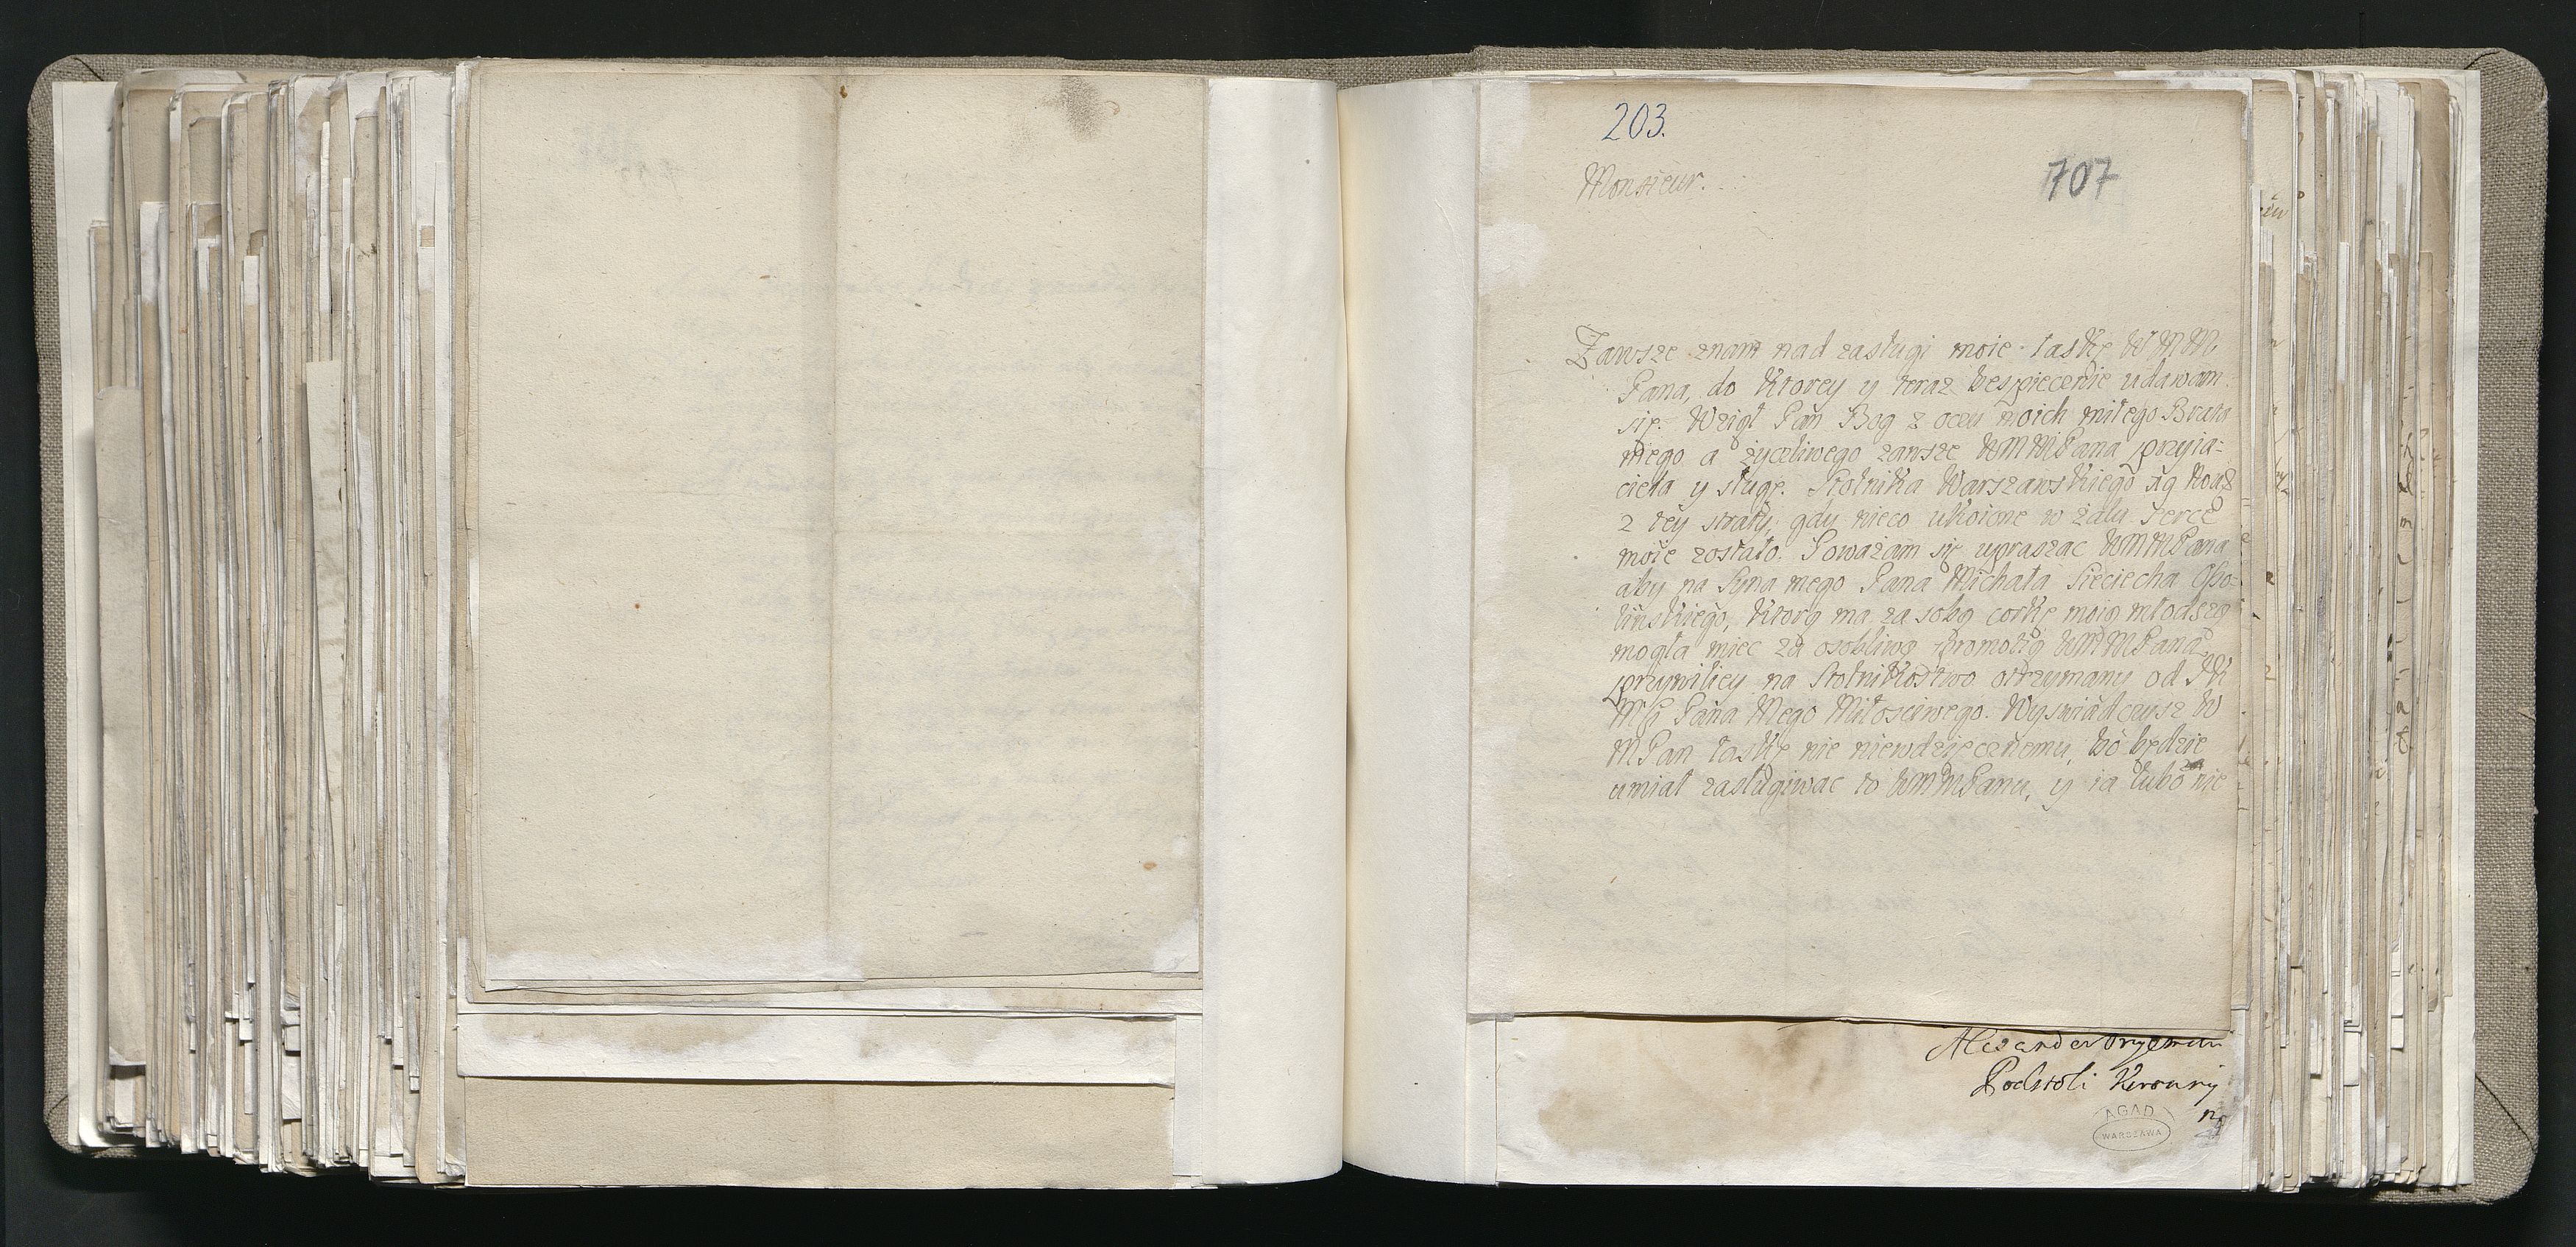 203.
707
Monsieur.
Zawsze znam nad zasługi moie łaskę W M M
Pana, do Ktorey y teraz bespiecznie udawam
się. Wziął Pan Bog z oczu moich miłego Brata
mego a życzliwego zawsze WMMPana przyia-
ciela y sługę. Stolnika Warszawskiego
z tey straty, gdy nieco ukoione w żalu serce
moie zostało. Poważam się upraszac WMMPana
aby na Syna mego Pana Michała Sieciecha Opo-
linskiego, Ktory ma za sobą corkę moię młodszą
mogła miec za osobliwą promotią WMMPana,
przywiliey na Stolnikostwo otrzymany od IK
MCi Pana Mego Miłosciwego. Wyswiadczysz W
MPan łaskę nie niewdzięcznemu, bo będzie
umiał zasługiwac to WMMPanu, y ia lubo nie
Alexander
Podstoli Koronny
AGAD
WARSZAWA